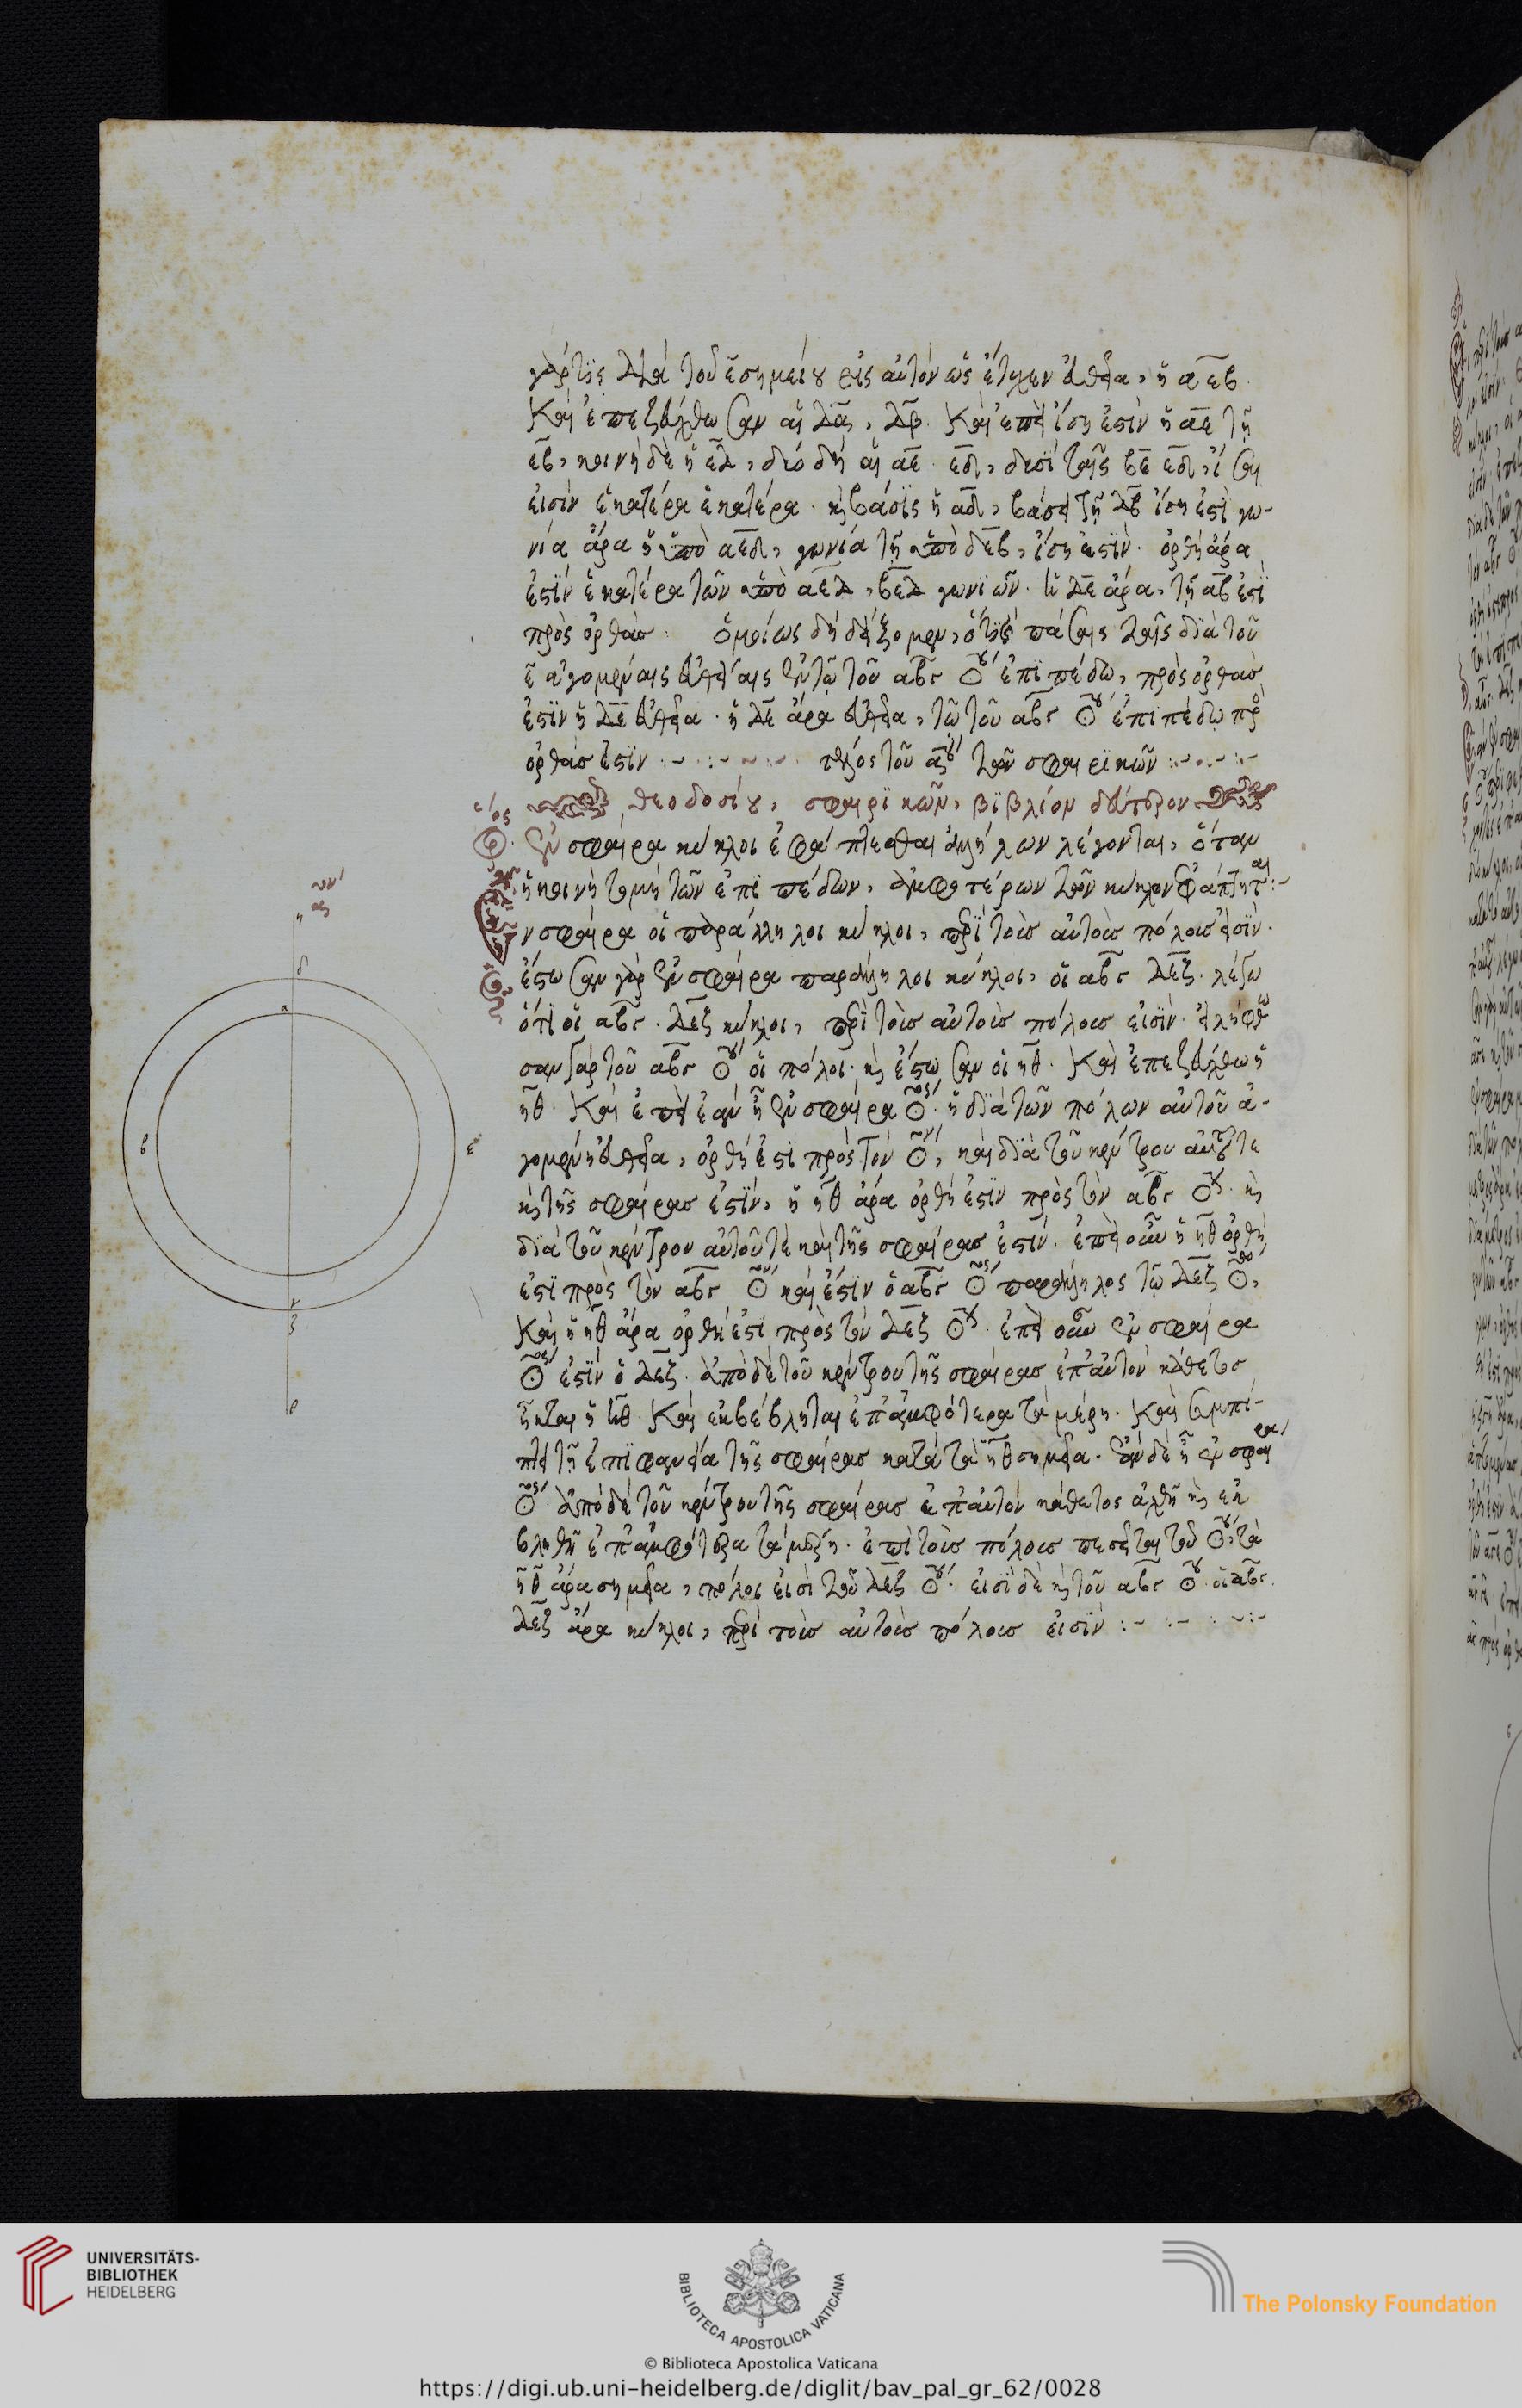 γάρ τις διὰ τοῦ ε σημείου εἰς αὐτὸν ὡς ἔτυχεν εὐθεῖα, ἡ αεβ.
Καὶ ἐπεζεύχθωσαν αἱ δα, δβ. Καὶ ἐπεὶ ἴση ἐστὶν ἡ αε τῇ
εβ, κοινὴ δὲ ἡ εδ, δύο δὴ αἱ αε. εδ, δυσὶ ταῖς βε εδ, ἴσαι
εἰσὶν ἑκατέρα ἑκατέρα. καὶ βάσις ἡ αδ, βάσει τῇ δβ ἴση ἐστὶ. γω-
νία ἄρα ἡ ὑπὸ αεδ, γωνία τῇ ὑπὸ δεβ, ἴση ἐστὶν. ὀρθὴ ἄρα
ἐστὶν ἑκατέρα τῶν ὑπὸ αεδ, βεδ γωνιῶν. ἡ δε ἄρα, τῇ αβ ἐστὶ
πρὸς ὀρθὰς. ὁμοίως δὴ δείξομεν, ὅτι καὶ πάσαις ταῖς διὰ τοῦ
ε ἀγομέναις εὐθείαις ἐν τῷ τοῦ αβγ ☉ου ἐπιπέδω, πρὸς ὀρθὰς
ἐστὶν ἡ δε εὐθεῖα. ἡ δε ἄρα εὐθεῖα, τῷ τοῦ αβγ ☉ου ἐπιπέδῳ πρὸς
ὀρθάς ἐστιν :~ τέλος τοῦ αου τῶν σφαιρικῶν :~
Θεοδοσίου, σφαιρικῶν, βιβλίον δεύτερον
ὅρος
Ἐν σφαίρα κύκλοι ἐφάπτεσθαι ἀλλήλων λέγονται, ὅταν
ἡ κοινὴ τομὴ τῶν ἐπιπέδων, ἀμφοτέρων τῶν κύκλων ἐφάπτηται :~
Ἐν σφαίρα οἱ παράλληλοι κύκλοι, περὶ τοὺς αὐτοὺς πόλους εἰσὶν.
ἔστωσαν γὰρ ἐν σφαίρα παράλληλοι κύκλοι, οἱ αβγ δεζ. λέγω
ὅτι οἱ αβγ. δεζ κύκλοι, περὶ τοὺς αὐτοὺς πόλους εἰσὶν. εἰλήφθω
σαν γὰρ τοῦ αβγ ☉ου οἱ πόλοι. καὶ ἔστωσαν οἱ ηθ. Καὶ ἐπεζεύχθω ἡ
ηθ. Καὶ ἐπεὶ ἐὰν ᾖ ἐν σφαίρα ☉ος. ἡ διὰ τῶν πόλων αὐτοῦ ἀ-
γομένη εὐθεῖα, ὀρθή ἐστι πρὸς τὸν ☉ον, καὶ διὰ τοῦ κέντρου αὐτοῦ τε
καὶ τῆς σφαίρας ἐστὶν, ἡ ηθ ἄρα ὀρθή ἐστιν πρὸς τὸν αβγ ☉ον. καὶ
διὰ τοῦ κέντρου αὐτοῦ τὲ καὶ τῆς σφαίρας ἐστίν. ἐπεὶ οὖν ἡ ηθ ὀρθή
ἐστὶ πρὸς τὸν αβγ ☉ον καὶ ἐστὶν ὁ αβγ ☉ος παράλληλος τῷ δεζ ☉,
Καὶ ἡ ηθ ἄρα ὀρθή ἐστὶ πρὸς τὸν δεζ ☉ον. ἐπεὶ οὖν ἐν σφαίρα
☉ος ἐστὶν ὁ δεζ. ἀπὸ δὲ τοῦ κέντρου τῆς σφαίρας ἐπ' αὐτὸν κάθετος
ἦκται ἡ ηθ. Καὶ ἐκβέβληται ἐπ' ἀμφότερα τὰ μέρη. Καὶ συμπί-
πτει τῇ ἐπιφανεία τῆς σφαίρας κατὰ τὰ ηθ σημεῖα. ἐὰν δὲ ᾖ ἐν σφαίρα
☉ος. ἀπὸ δὲ τοῦ κέντρου τῆς σφαίρας ἐπ' αὐτὸν κάθετος ἀχθῆ καὶ ἐκ
βληθῆ ἐπ' ἀμφότερα τὰ μέρη. ἐπὶ τοὺς πόλους πεσεῖται τοῦ ☉ου, τὰ
ηθ ἄρα σημεῖα, πόλοι εἰσὶ τοῦ δεζ ☉ου. εἰσὶ δὲ καὶ τοῦ αβγ ☉ου. οἱ αβγ.
δεζ ἄρα κύκλοι, περὶ τοὺς αὐτοὺς πόλους εἰσὶν :~
η
δ
α
β
ε
γ
ζ
θ
UNIVERSITÄTS-
BIBLIOTHEK
HEIDELBERG
BIBLIOTECA APOSTOLICA VATICANA
The Polonsky Foundation
© Biblioteca Apostolica Vaticana
https://digi.ub.uni-heidelberg.de/diglit/bav_pal_gr_62/0028